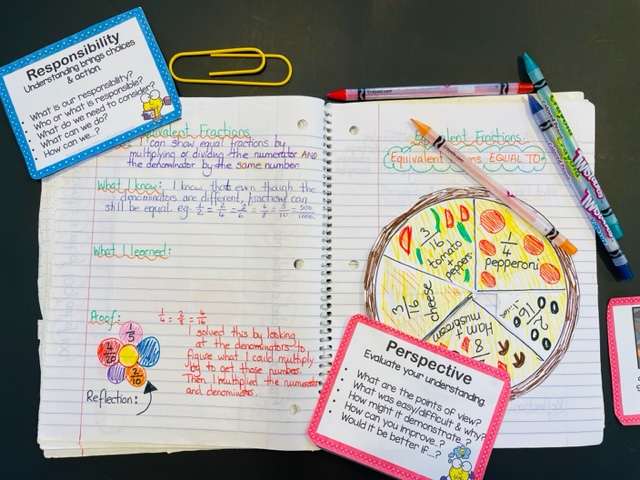 Responsibility
Understanding brings choices
& action.
What is our responsibility?
Who or what is responsible?
What do we need to consider?
What can we do?
How can we...?
Fractions
I can show equal fractions by
multiplying or dividing the numerator AND
the denominator by the same number.
What I know: I know that even though the
denominators are different, fractions can
still be equal. eg. 1/2 = 2/4 = 3/6 = 4/8 = 5/10 = 500/1000
What I learned:
Proof: 1/4 = 2/8 = 4/16
I solved this by looking
at the denominators to
figure what I could multiply
by to get those
Then I multiplied the numerator
and denominators.
1/5
4/20
2/10
Reflection:
Fractions:
EQUAL TO
3/16
tomato
+
peppers
1/4
pepperoni
3/16
cheese
2/16
olives
Ham +
mushroom
Perspective
Evaluate your understanding.
What are the points of view?
What was easy/difficult & why?
How might it demonstrate..?
How can you improve..?
Would it be better if....?
Twistables
Twistables